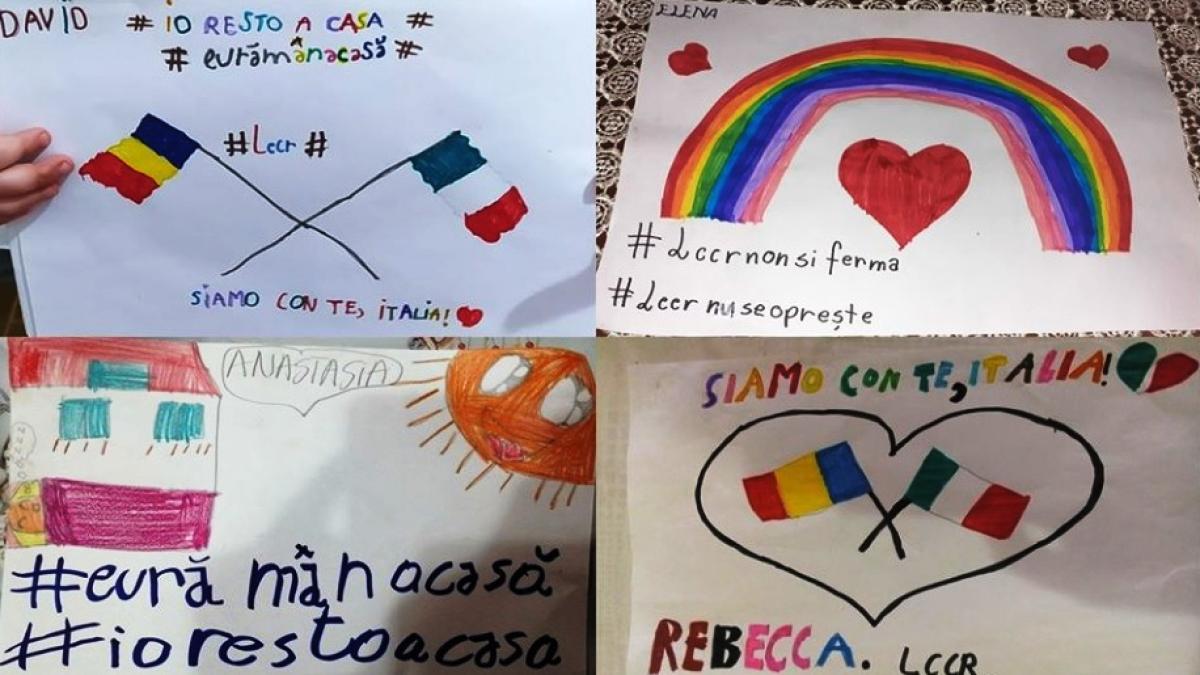 DAVID # IO RESTO A CASA #
# eurămânacasă #
#Lccr#
SIAMO CON TE, ITALIA!
ELENA
#Lccrnonsi ferma
#Lccr nuseoprește
ANASTASIA
#eură mânacasă
#iorestoacasa
SIAMO CON TE, ITALIA!
REBECCA. LCCR